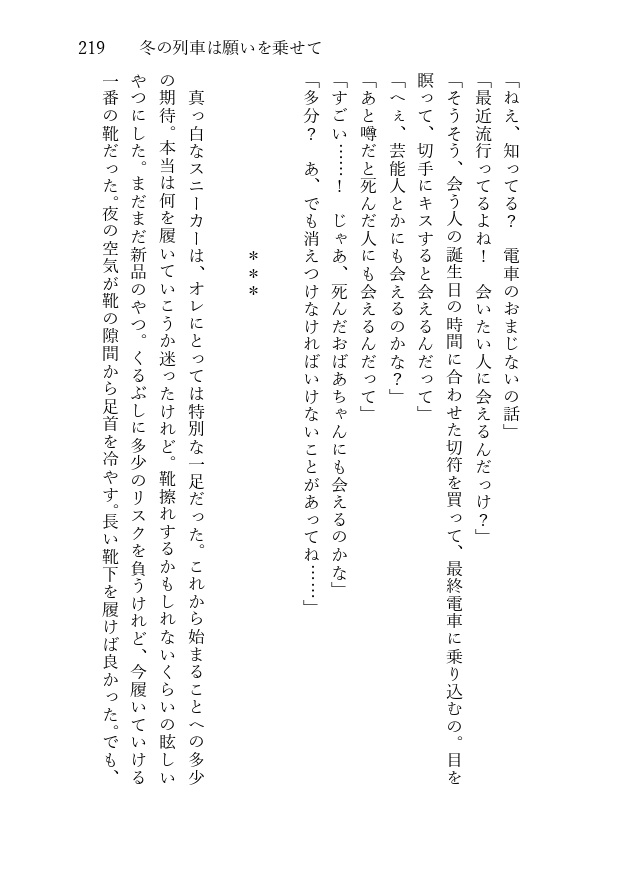 219 冬の列車は願いを乗せて
「ねえ、知ってる？　電車のおまじないの話」
「最近流行ってるよね！　会いたい人に会えるんだっけ？」
「そうそう、会う人の誕生日の時間に合わせた切符を買って、最終電車に乗り込むの。目を
瞑って、切手にキスすると会えるんだって」
「へぇ、芸能人とかにも会えるのかな？」
「あと噂だと死んだ人にも会えるんだって」
「すごい……！　じゃあ、死んだおばあちゃんにも会えるのかな」
「多分？　あ、でも消えつけなければいけないことがあってね……」
＊＊＊
　真っ白なスニーカーは、オレにとっては特別な一足だった。これから始まることへの多少
の期待。本当は何を履いていこうか迷ったけれど。靴擦れするかもしれないくらいの眩しい
やつにした。まだまだ新品のやつ。くるぶしに多少のリスクを負うけれど、今履いていける
一番の靴だった。夜の空気が靴の隙間から足首を冷やす。長い靴下を履けば良かった。でも、